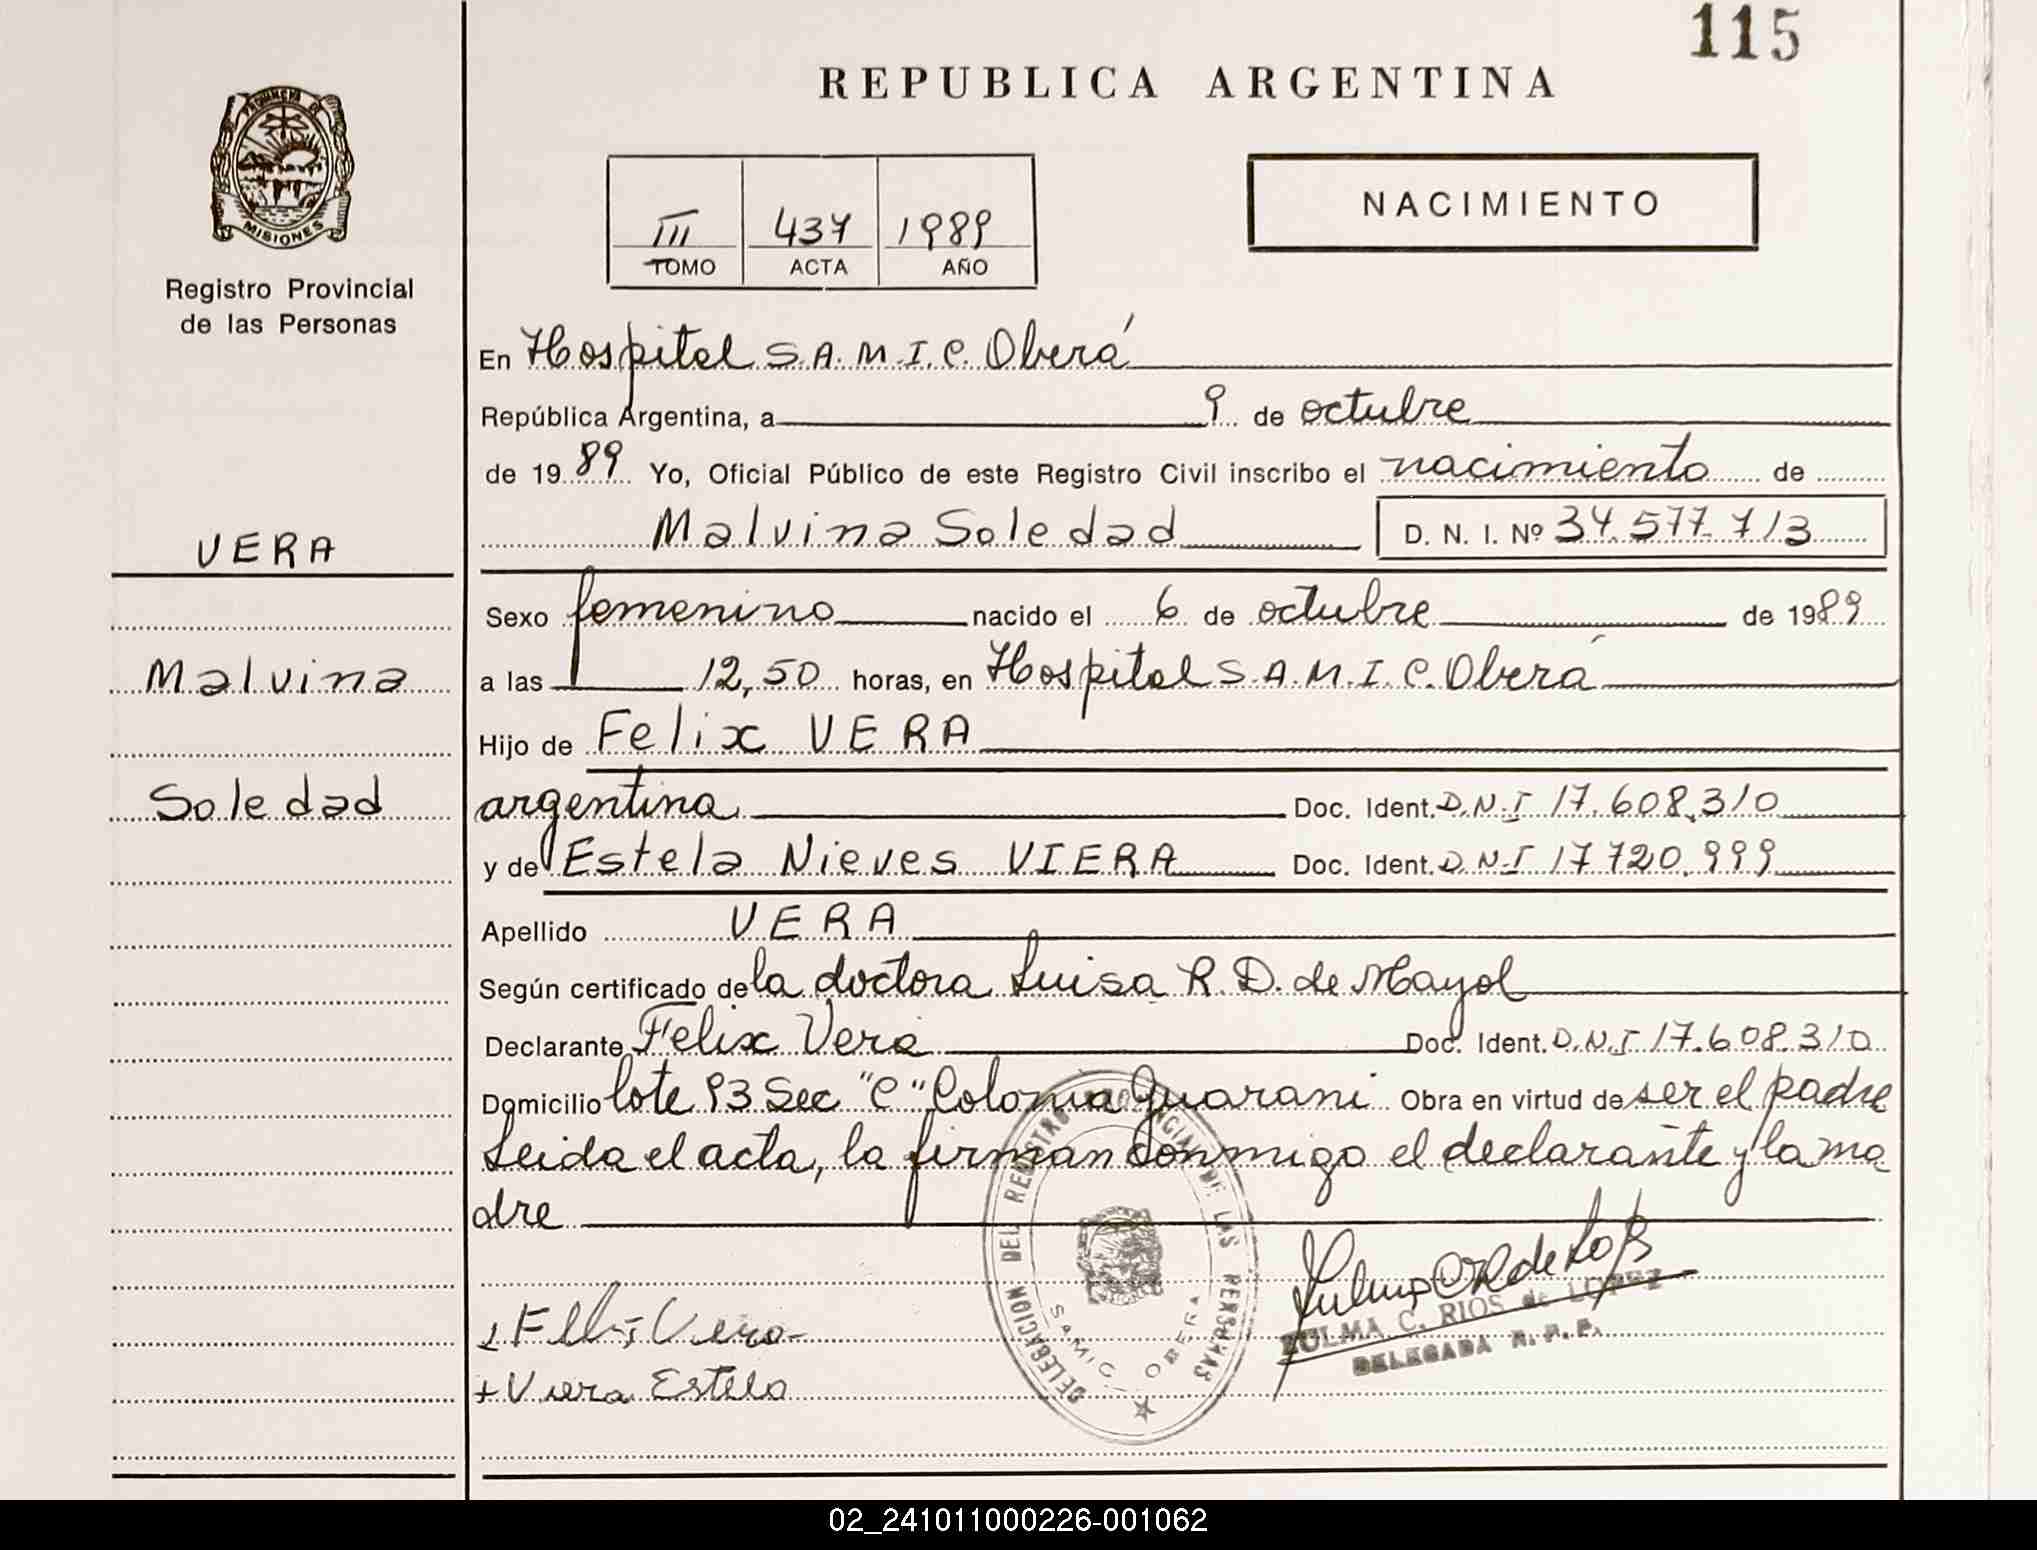 115
REPUBLICA ARGENTINA
PROVINCIA DE
MISIONES
Registro Provincial
de las Personas
III 437 1989
TOMO ACTA AÑO
NACIMIENTO
En Hospital S.A.M.I.C. Oberá
República Argentina, a 9 de octubre
de 1989 Yo, Oficial Público de este Registro Civil inscribo el nacimiento de
Malvina Soledad D. N. I. Nº 34.577.713
VERA
Malvina
Soledad
Sexo femenino nacido el 6 de octubre de 1989
a las 12,50 horas, en Hospital S.A.M.I.C. Oberá
Hijo de Felix VERA
argentina Doc. Ident. D.N.I 17.608.310
y de Estela Nieves VIERA Doc. Ident. D.N.I 17.720.999
Apellido VERA
Según certificado de la doctora Luisa R. D. de Mayol
Declarante Felix Vera Doc. Ident. D.N.I 17.608.310
Domicilio lote 93 Sec "C" Colonia Guarani Obra en virtud de ser el padre
Leida el acta, la firman conmigo el declarante y la ma
dre
DELEGACION DEL REGISTRO PROVINCIAL DE LAS PERSONAS
SAMIC OBERA
ZULMA C. RIOS de LOPEZ
DELEGADA R. P. P.
Vera
+ Viera Estela
02_241011000226-001062